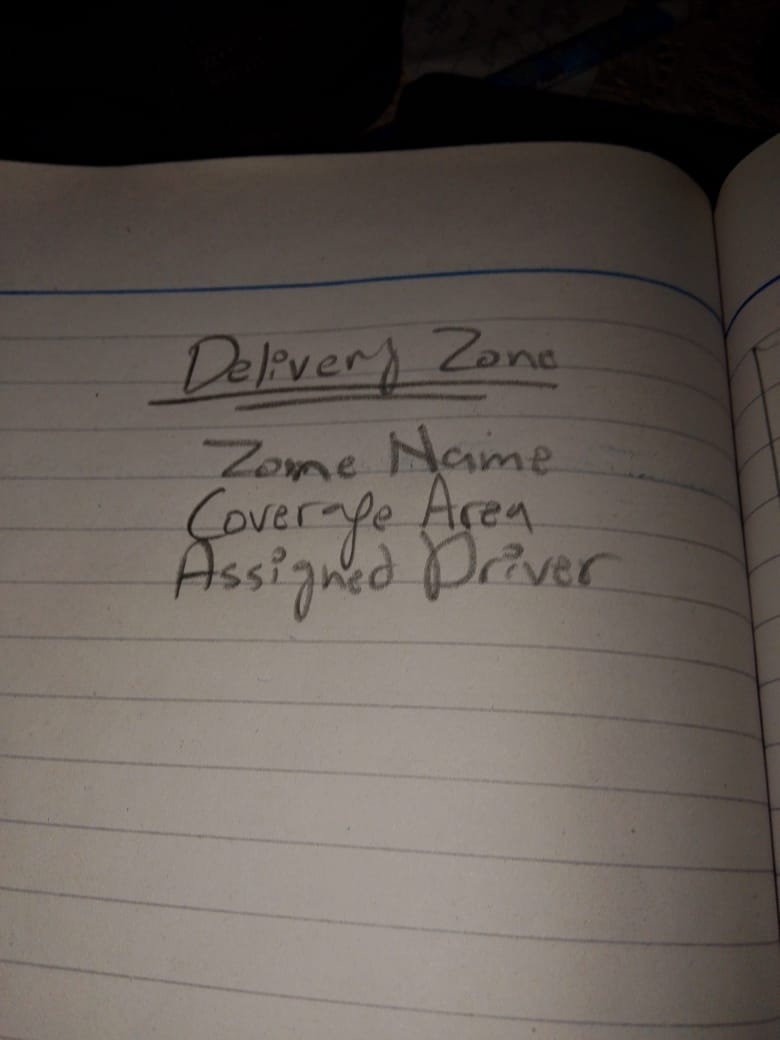 Delivery Zone
Zome Name
Coverage Area
Assigned Driver